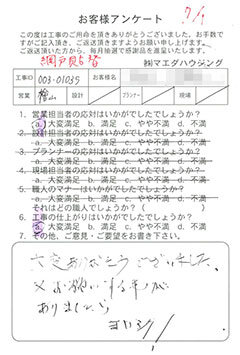 お客様アンケート
7/1
この度は工事のご用命を頂きありがとうございました。お手数で
すがご記入頂き、ご返送頂きますようお願い申し上げます。
ご返送頂いた方から、毎月抽選で感謝品を進呈致します。
網戸張替
㈱マエダハウジング
工事ID 003-01035 お客様名
営業 檜山 設計 プランナー 現場
1. 営業担当者の応対はいかがでしたでしょうか?
a. 大変満足 b. 満足 c. やや不満 d. 不満
2. 設計担当者の応対はいかがでしたでしょうか?
a. 大変満足 b. 満足 c. やや不満 d. 不満
3. プランナーの応対はいかがでしたでしょうか?
a. 大変満足 b. 満足 c. やや不満 d. 不満
4. 現場担当者の応対はいかがでしたでしょうか?
a. 大変満足 b. 満足 c. やや不満 d. 不満
5. 職人のマナーはいかがでしたでしょうか?
a. 大変満足 b. 満足 c. やや不満 d. 不満
それはどの職人でしょうか？( )
6. 工事の仕上がりはいかがでしたでしょうか?
a. 大変満足 b. 満足 c. やや不満 d. 不満
7. その他、ご意見・ご要望をお書き下さい。
大変ありがとうございました。
又お願いする事が
ありましたら
ヨロシク!